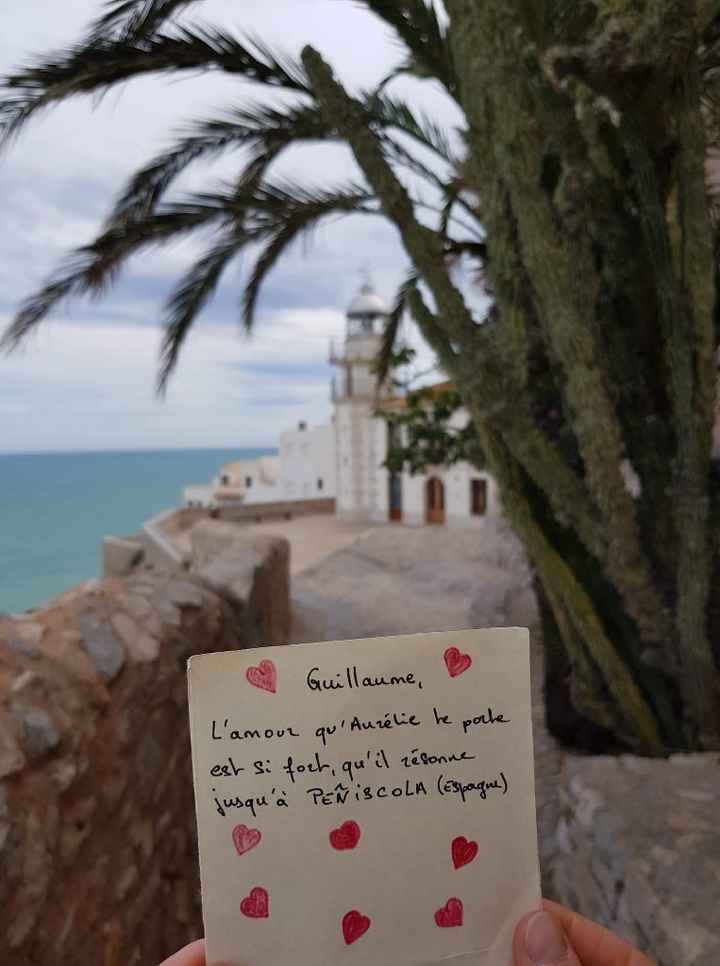 Guillaume,
L'amour qu'Aurélie te porte
est si fort, qu'il résonne
jusqu'à PEÑiSCOLA (Espagne)